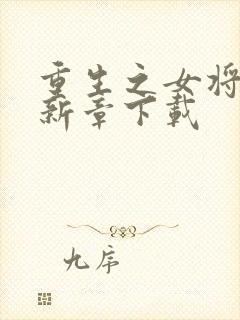 重生之女将
新章下載
九序